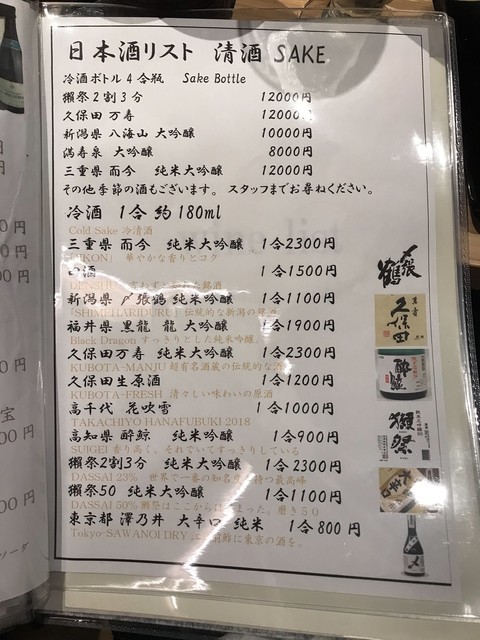 日本酒リスト 清酒 SAKE
冷酒ボトル4合瓶 Sake Bottle
獺祭2割3分 12000円
久保田 万寿 12000円
新潟県 八海山 大吟醸 10000円
満寿泉 大吟醸 8000円
三重県 而今 純米大吟醸 12000円
その他季節の酒もございます。 スタッフまでお尋ねください。
冷酒 1合 約180ml
Cold Sake 冷清酒
三重県 而今 純米大吟醸 1合2300円
「JIKON」 華やかな香りとコク
田酒 1合1500円
DENSHU
新潟県 〆張鶴 純米吟醸 1合1100円
「SHIMEHARIDURU」伝統的な新潟の
福井県 黒龍 龍 大吟醸 1合1900円
Black Dragon すっきりとした純米吟醸。
久保田万寿 純米大吟醸 1合2300円
KUBOTA-MANJU 超有名酒蔵の伝統的な
久保田生原酒 1合1200円
KUBOTA-FRESH 清々しい味わいの原酒
高千代 花吹雪 1合1000円
TAKACHIYO HANAFUBUKI 2018
高知県 酔鯨 純米吟醸 1合900円
SUIGEI 香り高く、それでいてすっきりしている
獺祭2割3分 純米大吟醸 1合2300円
DASSAI 23% 世界で一番の知名度 の最高峰
獺祭50 純米大吟醸 1合1100円
DASSAI 50% 獺祭はここから まった。磨き50
東京都 澤乃井 大辛口 純米 1合800円
Tokyo SAWANOI DRY に東京の酒を。
〆張鶴
萬寿
久保田
酔鯨
獺祭
大辛口
〆